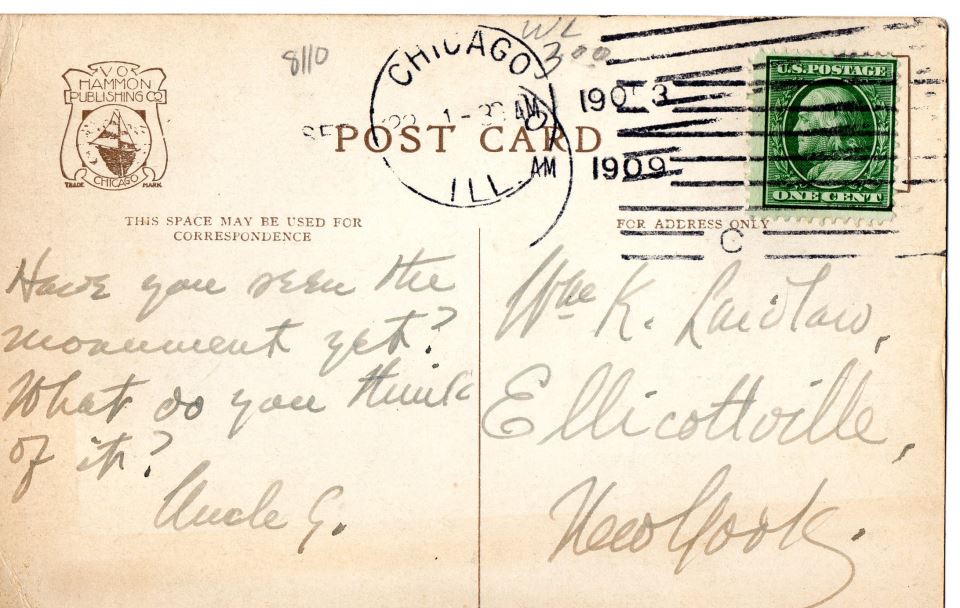 WL
8110
300
CHICAGO
ILL.
SEP 22 1-30 AM
AM 1909
C
U.S. POSTAGE
ONE CENT
VO
HAMMON
PUBLISHING CO
CHICAGO
TRADE MARK
POST CARD
THIS SPACE MAY BE USED FOR
CORRESPONDENCE
FOR ADDRESS ONLY
Have you seen the
monument yet?
What do you think
of it?
Uncle G.
Wm K. Laidlaw,
Ellicottville,
New York.